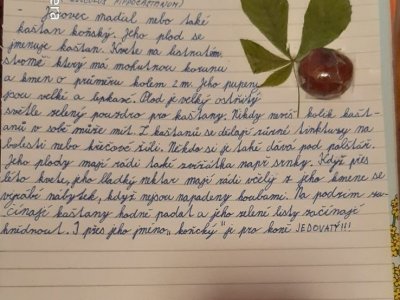 (AESCULUS HIPPOCASTANUM)
- Jírovec maďal nebo také
kaštan koňský. Jeho plod se
jmenuje kaštan. Kvete na listnatém
stromě který má mohutnou korunu
a kmen o průměru kolem 2 m. Jeho pupeny
jsou velké a lepkavé. Plod je velký ostnitý
světle zelený pouzdro pro kaštany. Nikdy nevíš kolik kašt-
anů v sobě může mít. Z kaštanů se dělají různé tinktury na
bolesti nebo křečové žíly. Někdo si je také dává pod polštář.
Jeho plody mají rádi také zvířátka např srnky. Když přes
léto kvete, jeho sladký nektar mají rádi včely z jeho kmene se
vyrábí nábytek, když nejsou napadeny houbami. Na podzim za-
čínají kaštany hodně padat a jeho zelené listy začínají
hnědnout. I přes jeho jméno „koňský" je pro koně JEDOVATÝ!!!